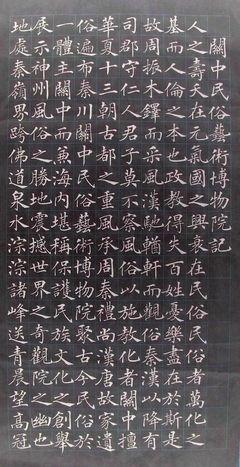 關中民俗藝術博物院記
人之壽夭在元氣國之興衰在民俗民俗者萬化之
基而人倫之本也政教得失百姓憂樂盡在於斯是
故周振木鐸而采風漢馳輶軒而觀俗秦漢以降有
司郡守仁人君子莫不察風俗以施教化者關中擅
華夏十三朝古都之重風禮尚漢唐故家遺
俗遍布秦川關中民俗藝術博物院集古今民俗於
一體主關中而兼海內堪稱保護民族文化之創舉
展示神州風俗之勝地震撼世界之奇觀院之幽也
地處秦嶺界跨佛道泉水淙淙諸峰送青晨望高冠